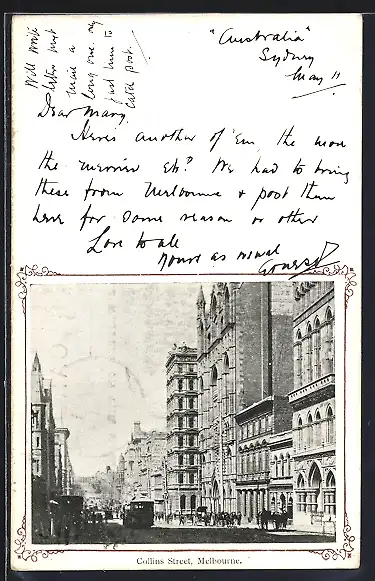 "Australia"
Sydney
May 11
Dear Mary
Heres another of 'Em, the more
the merrier Eh? We had to bring
these from Melbourne & post them
here for some reason or other
Love to all
Yours as usual
Ernest
Will write
letter next
mail a
long one. my
just time to
catch post.
Collins Street, Melbourne.